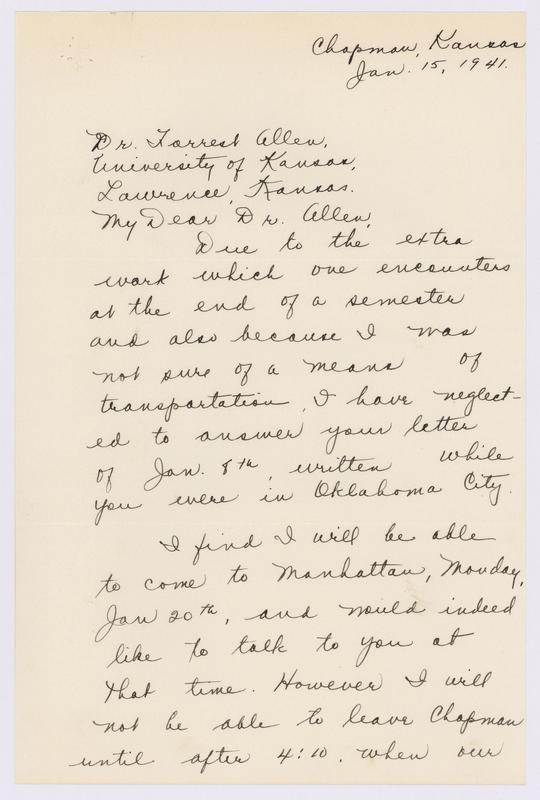 Chapman, Kansas
Jan. 15, 1941.
Dr. Forrest Allen,
University of Kansas,
Lawrence, Kansas.
My Dear Dr. Allen,
Due to the extra
work which one encounters
at the end of a semester
and also because I was
not sure of a means of
transportation, I have neglect-
ed to answer your letter
of Jan. 8th, written while
you were in Oklahoma City.
I find I will be able
to come to Manhattan, Monday,
Jan 20th, and would indeed
like to talk to you at
that time. However I will
not be able to leave Chapman
until after 4:10, when our